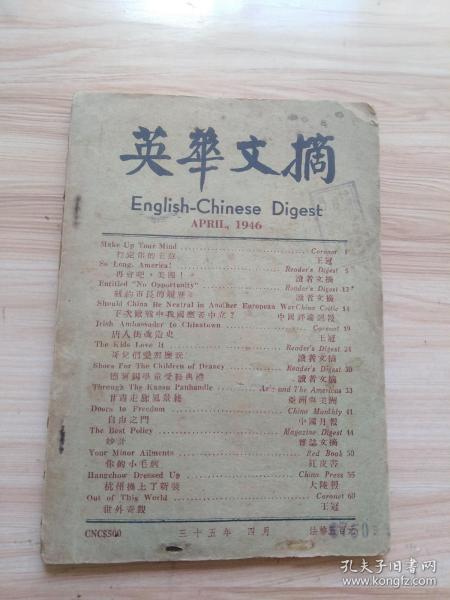 英華文摘
English-Chinese Digest
APRIL, 1946
Make Up Your Mind Coronet 1
打定你的主意 王冠
So Long, America! Reader's Digest 5
再會吧,美國! 讀者文摘
Entitled "No Opportunity" Reader's Digest 12
紐約市長的履歷 讀者文摘
Should China Be Neutral in Another European War China Critic 14
下次歐戰中我國應否中立? 中國評論週報
Irish Ambassador to Chinatown Coronet 19
唐人街改造史 王冠
The Kids Love It Reader's Digest 24
哥兒們愛那麼玩 讀者文摘
Shoes For The Children of Drancy Reader's Digest 30
德蘭錫學童受鞋典禮 讀者文摘
Through The Kansu Panhandle Asia and The Americas 33
甘肅走廊風景綫 亞洲與美洲
Doors to Freedom China Monthly 41
自由之門 中國月報
The Best Policy Magazine Digest 44
妙計 雜誌文摘
Your Minor Ailments Red Book 50
你的小毛病 紅皮書
Hangchow Dressed Up China Press 55
杭州換上了新裝 大陸報
Out of This World Coronet 60
世外奇觀 王冠
CNC$500 三十五年 四月 法幣五百元
孔夫子旧书网